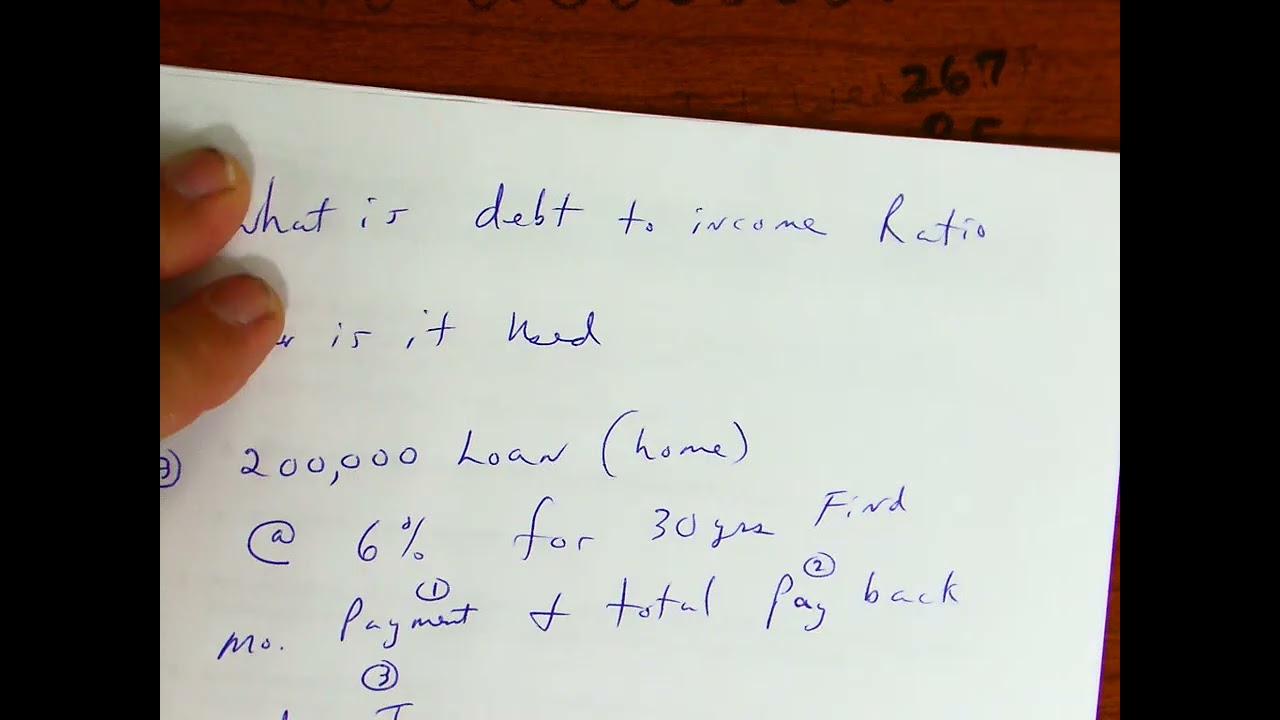 267
What is debt to income Ratio
is it Used
3) 200,000 Loan (home)
@ 6% for 30 yrs Find
① ②
mo. Payment & total Pay back
③